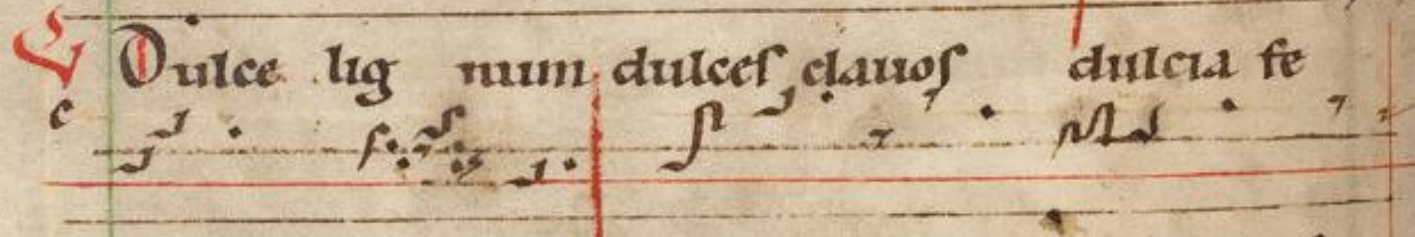 V Dulce lig num dulces clauos dulcia fe
c